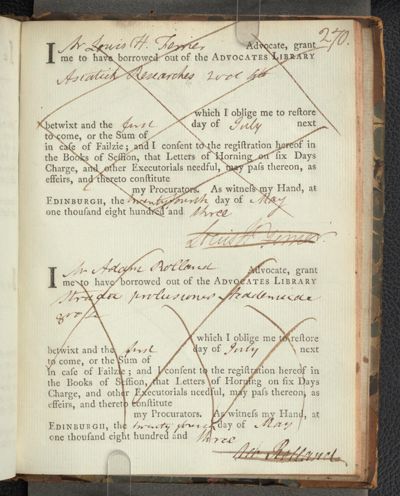 270.
I Mr Louis H. Ferrier Advocate, grant
me to have borrowed out of the ADVOCATES LIBRARY
Asiatick Researches 2 vol 4to
which I oblige me to reſtore
betwixt and the first day of July next
to come, or the Sum of
in caſe of Failzie; and I conſent to the regiſtration hereof in
the Books of Seſſion, that Letters of Horning on ſix Days
Charge, and other Executorials needful, may paſs thereon, as
effeirs, and thereto conſtitute
my Procurators. As witneſs my Hand, at
EDINBURGH, the twenty fourth day of May
one thouſand eight hundred and three
Louis H Ferrier
I Mr Adam Rolland Advocate, grant
me to have borrowed out of the ADVOCATES LIBRARY
Stradae prolusiones Academicae
which I oblige me to reſtore
betwixt and the first day of July next
to come, or the Sum of
in caſe of Failzie; and I conſent to the regiſtration hereof in
the Books of Seſſion, that Letters of Horning on ſix Days
Charge, and other Executorials needful, may paſs thereon, as
effeirs, and thereto conſtitute
my Procurators. As witneſs my Hand, at
EDINBURGH, the twenty fourth day of May
one thouſand eight hundred and three
Ad Rolland